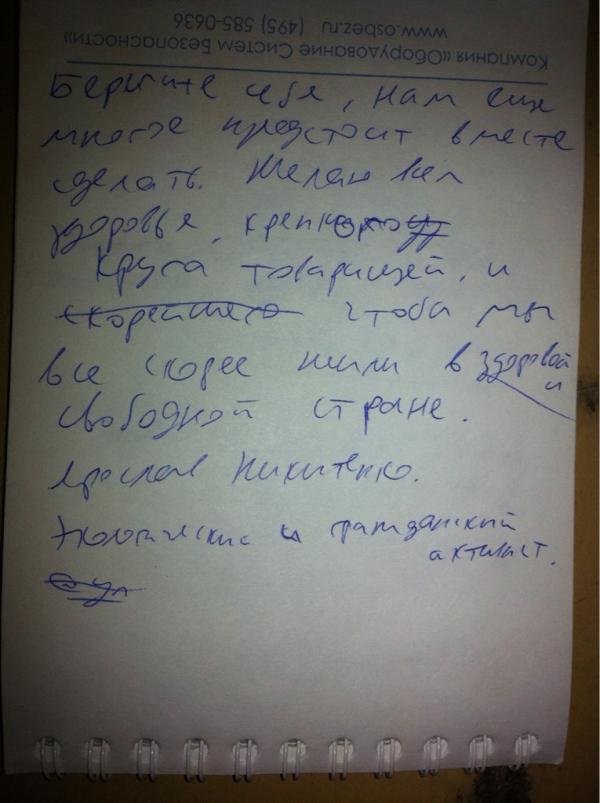 Компания «Оборудование Систем Безопасности»
www.osbez.ru (495) 585-0636
Берегите себя, нам еще
многое предстоит вместе
сделать. Желаю вам
здоровья, крепкого
круга товарищей, и
скорейшего чтобы мы
все скорее жили в здоровой
и
свободной стране.
Ярослав Никитенко.
Экологический и гражданский
активист.